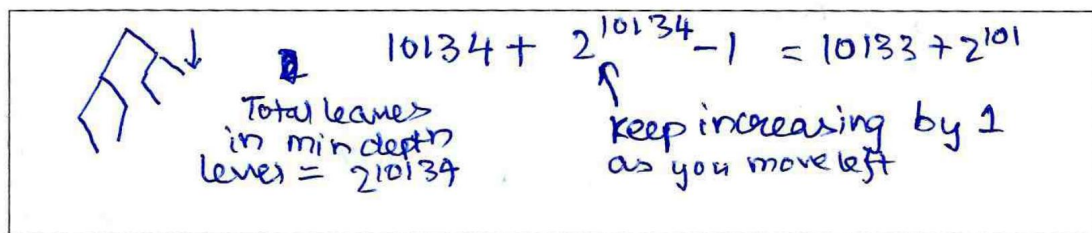 10134 + 2^10134 - 1 = 10133 + 2^101
Total leaves
in min depth
level = 2^10134
keep increasing by 1
as you move left